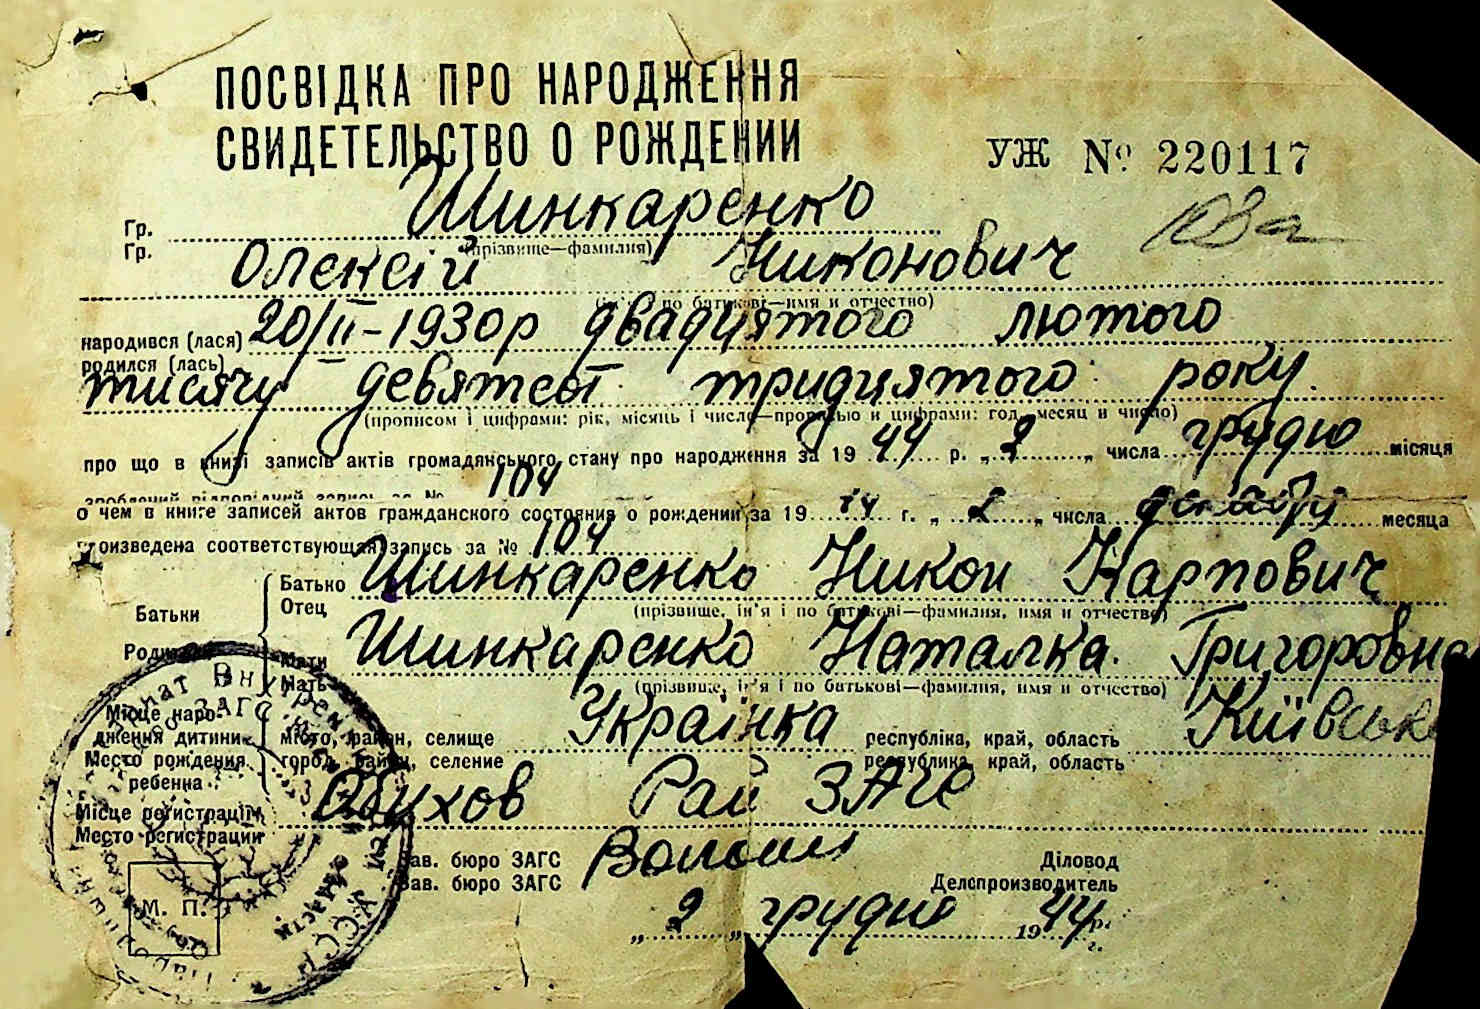 ПОСВІДКА ПРО НАРОДЖЕННЯ
СВИДЕТЕЛЬСТВО О РОЖДЕНИИ
УЖ № 220117
Гр. Шинкаренко
Гр. (прізвище—фамилия)
Олексій Никонович
по батькові—имя и отчество)
народився (лася) 20/II-1930р двадцятого лютого
родился (лась)
тисячу девятсот тридцятого року.
(прописом і цифрами: рік, місяць і число—прописью и цифрами: год, месяц и число)
про що в книзі записів актів громадянського стану про народження за 19 44 р. „ 2 „ числа грудню місяця
зроблений відповідний запис за № 104
о чем в книге записей актов гражданского состояния о рождении за 19 44 г. „ 2 „ числа декабря месяца
произведена соответствующая запись за № 104
Батьки
Родители
Батько Шинкаренко Никон Карпович
Отец (прізвище, ім'я і по батькові—фамилия, имя и отчество)
Мати Шинкаренко Наталка Григоровна
Мать (прізвище, ім'я і по батькові—фамилия, имя и отчество)
Місце народження дитини місто, район, селище Українка республіка, край, область Київська
Место рождения ребенка город, район, селение республика, край, область
Місце регістрації Обухов Рай ЗАГС
Место регистрации
Зав. бюро ЗАГС Діловод
Зав. бюро ЗАГС Делопроизводитель
М. П.
„ 2 „ грудню 1944 р.
г.